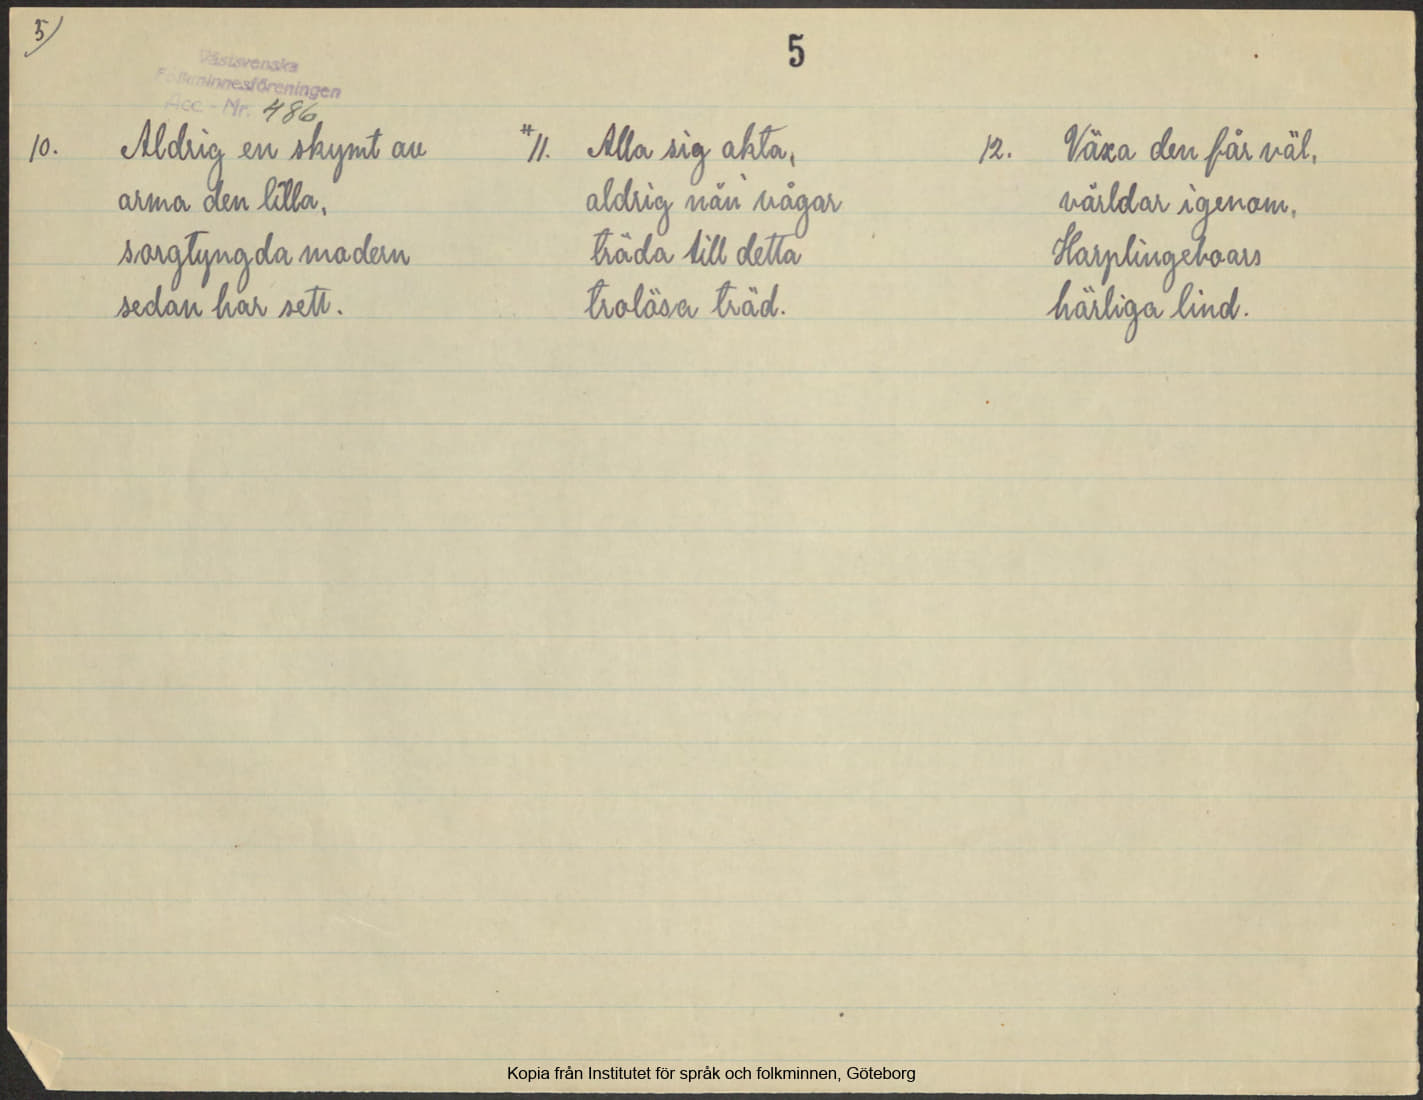 5)
5
Västsvenska
Folkminnesföreningen
Acc.-Nr. 486
10. Aldrig en skymt av
arma den lilla,
sorgtyngda modern
sedan har sett.
*11. Alla sig akta,
aldrig nån' vågar
träda till detta
trolösa träd.
12. Växa den får väl,
världar igenom,
Harplingeboars
härliga lind.
Kopia från Institutet för språk och folkminnen, Göteborg